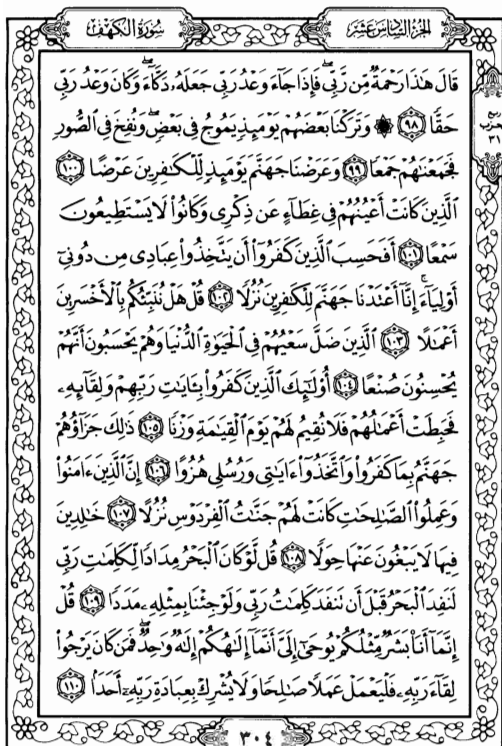 الجزء السادس عشر
سورة الكهف
قَالَ هَٰذَا رَحْمَةٌ مِّن رَّبِّى فَإِذَا جَآءَ وَعْدُ رَبِّى جَعَلَهُۥ دَكَّآءَ وَكَانَ وَعْدُ رَبِّى
حَقًّا ٩٨ ۞ وَتَرَكْنَا بَعْضَهُمْ يَوْمَئِذٍ يَمُوجُ فِى بَعْضٍ وَنُفِخَ فِى ٱلصُّورِ
فَجَمَعْنَٰهُمْ جَمْعًا ٩٩ وَعَرَضْنَا جَهَنَّمَ يَوْمَئِذٍ لِّلْكَٰفِرِينَ عَرْضًا ١٠٠
ٱلَّذِينَ كَانَتْ أَعْيُنُهُمْ فِى غِطَآءٍ عَن ذِكْرِى وَكَانُوا۟ لَا يَسْتَطِيعُونَ
سَمْعًا ١٠١ أَفَحَسِبَ ٱلَّذِينَ كَفَرُوٓا۟ أَن يَتَّخِذُوا۟ عِبَادِى مِن دُونِىٓ
أَوْلِيَآءَ إِنَّآ أَعْتَدْنَا جَهَنَّمَ لِلْكَٰفِرِينَ نُزُلًا ١٠٢ قُلْ هَلْ نُنَبِّئُكُم بِٱلْأَخْسَرِينَ
أَعْمَٰلًا ١٠٣ ٱلَّذِينَ ضَلَّ سَعْيُهُمْ فِى ٱلْحَيَوٰةِ ٱلدُّنْيَا وَهُمْ يَحْسَبُونَ أَنَّهُمْ
يُحْسِنُونَ صُنْعًا ١٠٤ أُو۟لَٰٓئِكَ ٱلَّذِينَ كَفَرُوا۟ بِـَٔايَٰتِ رَبِّهِمْ وَلِقَآئِهِۦ
فَحَبِطَتْ أَعْمَٰلُهُمْ فَلَا نُقِيمُ لَهُمْ يَوْمَ ٱلْقِيَٰمَةِ وَزْنًا ١٠٥ ذَٰلِكَ جَزَآؤُهُمْ
جَهَنَّمُ بِمَا كَفَرُوا۟ وَٱتَّخَذُوٓا۟ ءَايَٰتِى وَرُسُلِى هُزُوًا ١٠٦ إِنَّ ٱلَّذِينَ ءَامَنُوا۟
وَعَمِلُوا۟ ٱلصَّٰلِحَٰتِ كَانَتْ لَهُمْ جَنَّٰتُ ٱلْفِرْدَوْسِ نُزُلًا ١٠٧ خَٰلِدِينَ
فِيهَا لَا يَبْغُونَ عَنْهَا حِوَلًا ١٠٨ قُل لَّوْ كَانَ ٱلْبَحْرُ مِدَادًا لِّكَلِمَٰتِ رَبِّى
لَنَفِدَ ٱلْبَحْرُ قَبْلَ أَن تَنفَدَ كَلِمَٰتُ رَبِّى وَلَوْ جِئْنَا بِمِثْلِهِۦ مَدَدًا ١٠٩ قُلْ
إِنَّمَآ أَنَا۠ بَشَرٌ مِّثْلُكُمْ يُوحَىٰٓ إِلَىَّ أَنَّمَآ إِلَٰهُكُمْ إِلَٰهٌ وَٰحِدٌ فَمَن كَانَ يَرْجُوا۟
لِقَآءَ رَبِّهِۦ فَلْيَعْمَلْ عَمَلًا صَٰلِحًا وَلَا يُشْرِكْ بِعِبَادَةِ رَبِّهِۦٓ أَحَدًۢا ١١٠
ربع
حزب
٣١
٣٠٤